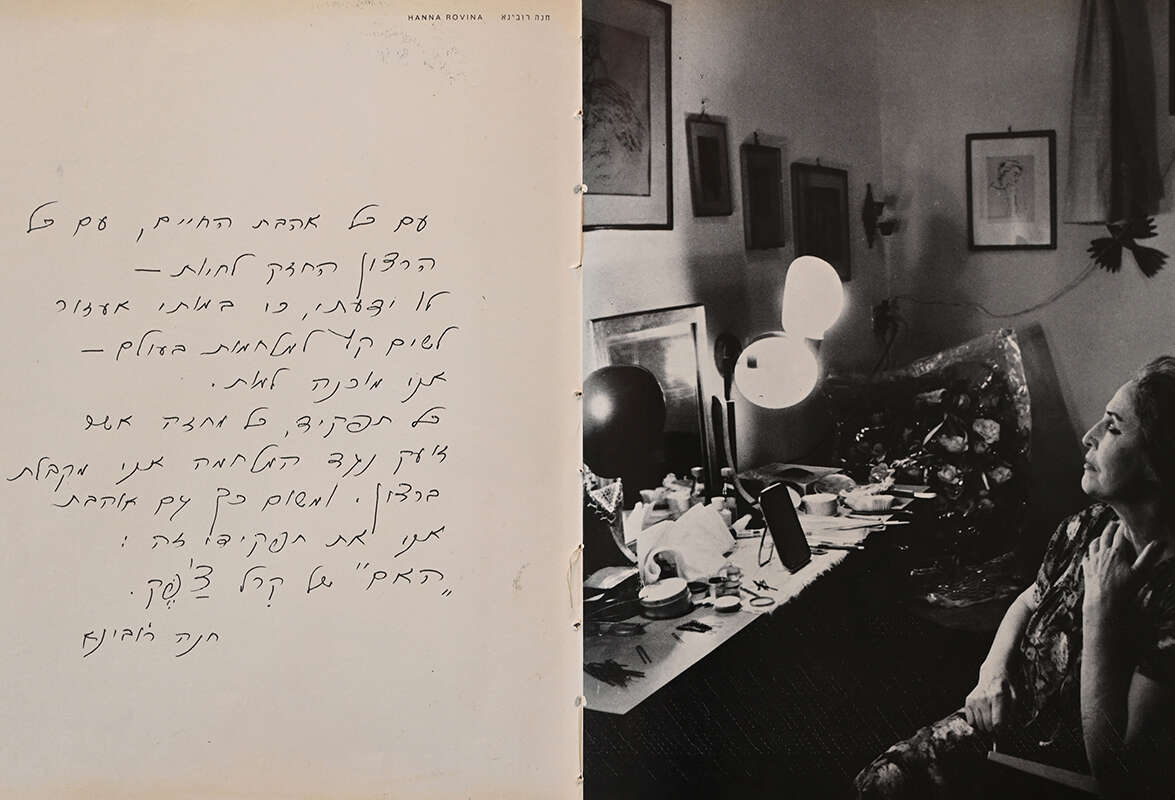 HANNA ROVINA חנה רובינא
עם כל אהבת החיים, עם כל
הרצון החזק לחיות –
לו ידעתי, כי במותי אעזור
לשים קץ למלחמות בעולם –
אני מוכנה למות.
כל תפקיד, כל מחזה אשר
זועק נגד המלחמה אני מקבלת
ברצון. ומשום כך גם אוהבת
אני את תפקידי זה:
"האם" של קרל צ'פק.
חנה רובינא